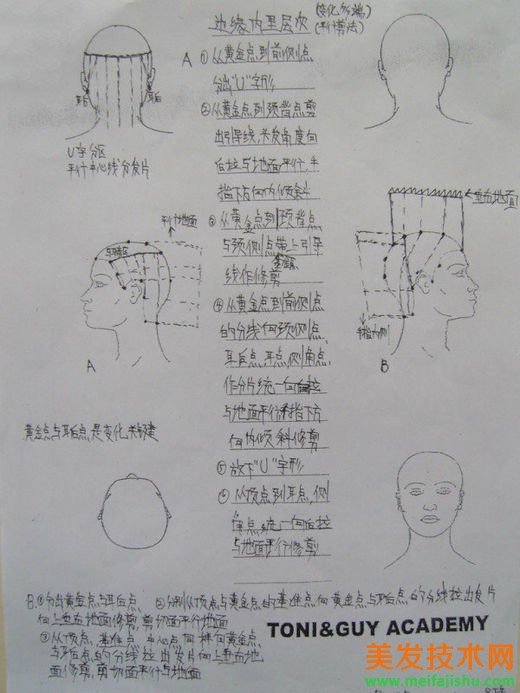 边缘内里层次
(变化所端)
(利剪法)
A ①从黄金点到前侧点
分出"U"字形
②从黄金点到颈背点剪
出引导线,头发角度向
后拉与地面平行,手
指下向内倾斜
③从黄金点到颈背点
与颈侧点带上引导
线作修剪
④从黄金点到前侧点
的分线向颈侧点、
耳后点、耳点、侧角点,
作分片统一向后拉
与地面平行手指下方
向内倾斜修剪
⑤放下"U"字形
⑥从顶点到耳点,侧
角点,统一向后拉
与地面平行修剪
耳后
耳后
U字分区
平行中心线分发片
平行地面
A
垂直地面
手指内侧
B
黄金点与耳后点,是变化
B.①分出黄金点与耳后点,
②分别从顶点与黄金点的基准点向黄金点与耳后点的分线拉出发片
向上垂直地面修剪,剪切面平行地面
③从顶点,基准点,中心点同样向黄金点
与耳后点的分线拉出发片向上垂直地
面修剪,剪切面平行与地面
TONI&GUY ACADEMY
美发技术网
www.meifajishu.com